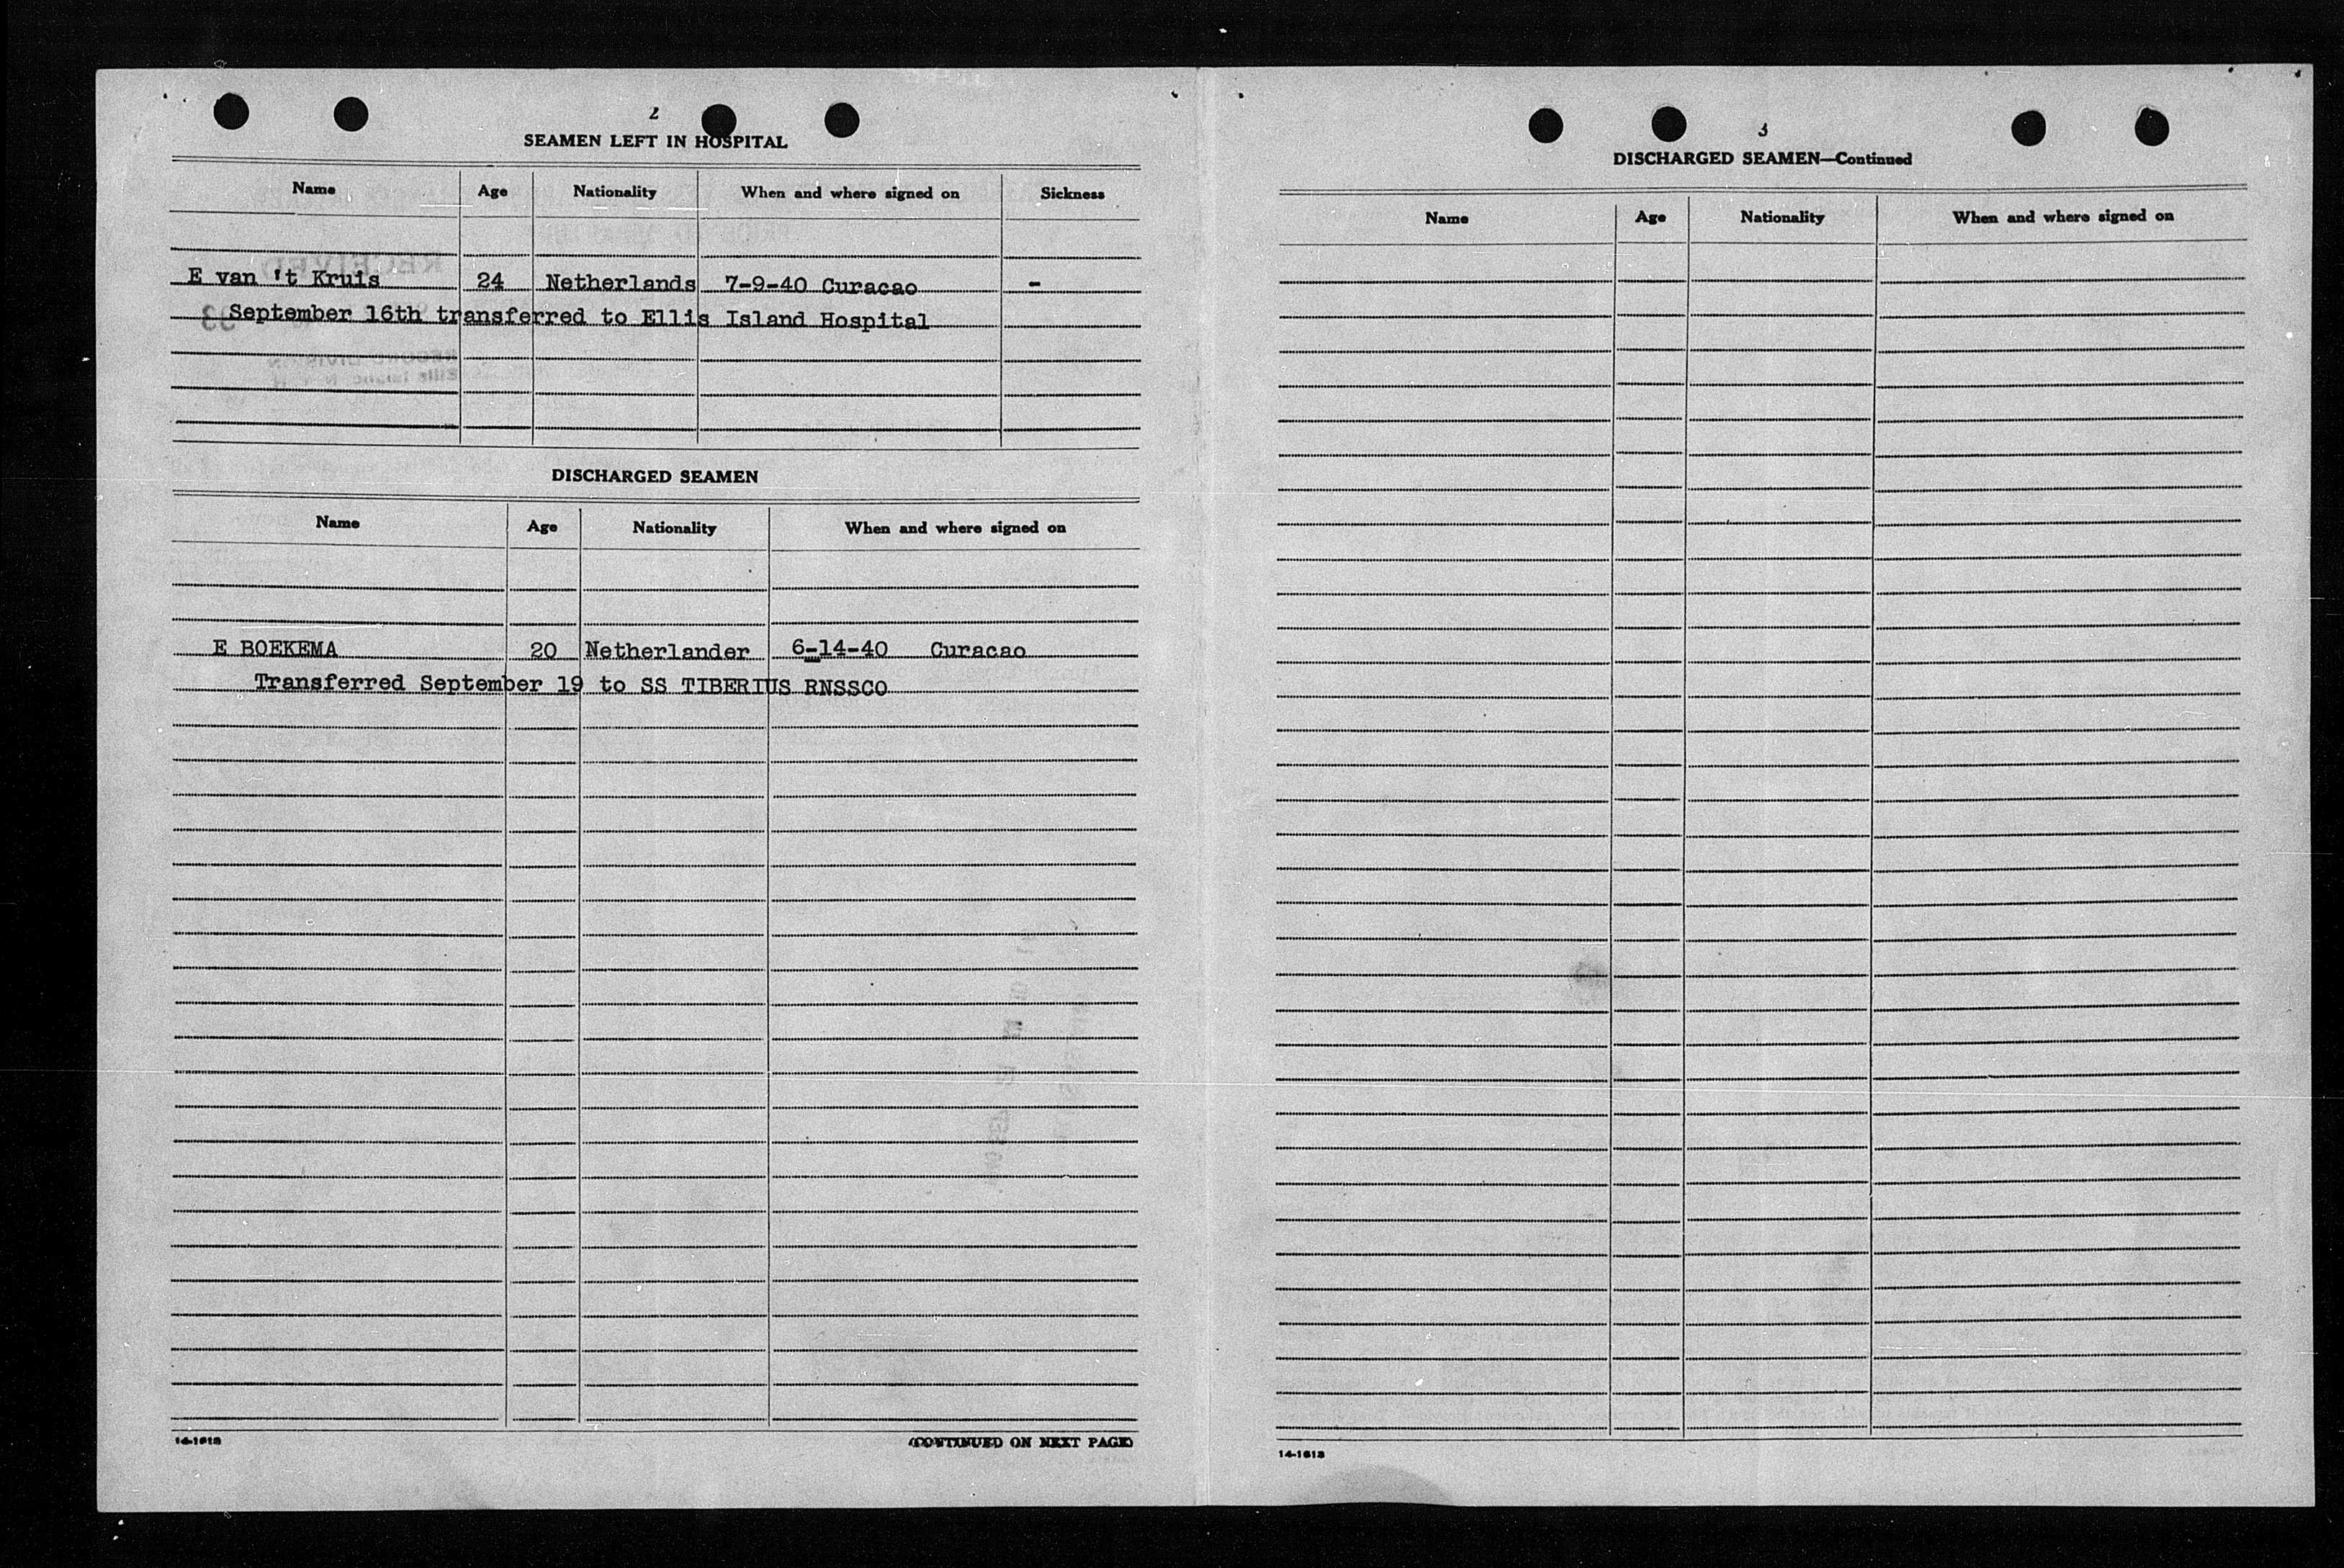 2
SEAMEN LEFT IN HOSPITAL
Name Age Nationality When and where signed on Sickness
E van 't Kruis 24 Netherlands 7-9-40 Curacao -
September 16th transferred to Ellis Island Hospital
DISCHARGED SEAMEN
Name Age Nationality When and where signed on
E BOEKEMA 20 Netherlander 6-14-40 Curacao
Transferred September 19 to SS TIBERIUS RNSSCO
14-1613 (CONTINUED ON NEXT PAGE)
3
DISCHARGED SEAMEN—Continued
Name Age Nationality When and where signed on
14-1613